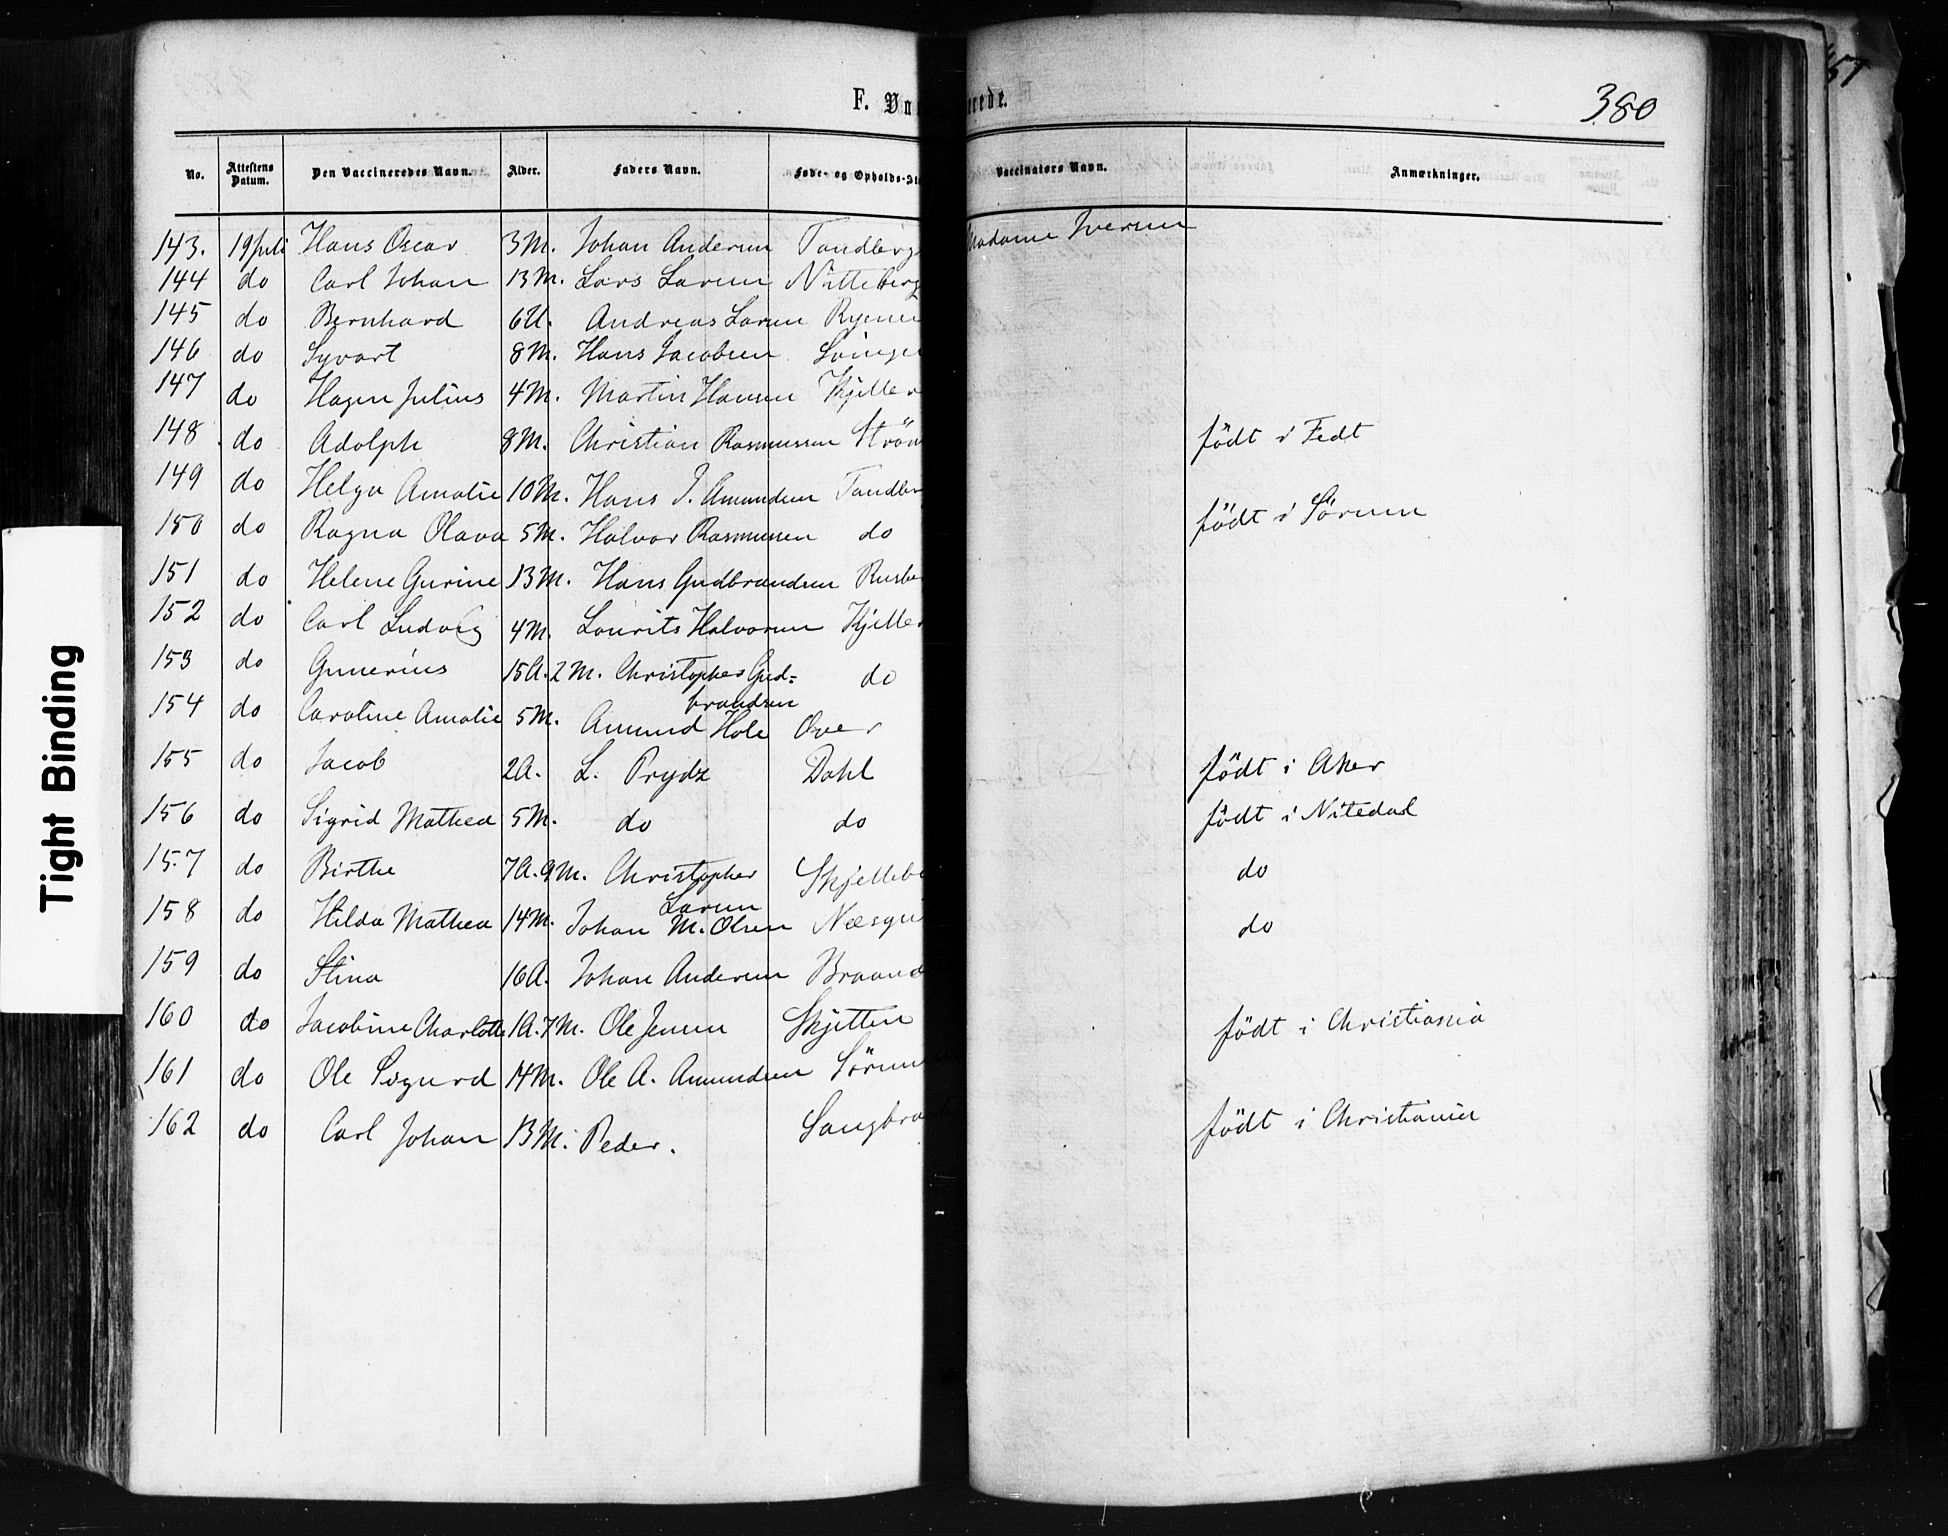 F. Va erede.
380
57
No. Attestens Datum. Den Vaccineredes Navn. Alder. Faders Navn. Føde- og Opholds-Ste Vaccinators Navn. Anmærkninger.
143. 19 Juli Hans Oscar 3 M. Johan Andersen Tandberg Madame Iversen
144 do Carl Johan 13 M. Lars Larsen Nitteberg
145 do Bernhard 6 U. Andreas Larsen Ryenen
146 do Syvart 8 M. Hans Jacobsen
147 do Hagen Julius 4 M. Martin Hansen Kjeller
148 do Adolph 8 M. Christian Rasmussen Strøm født i Fedt
149 do Helga Amalie 10 M. Hans J. Amundsen Tandber
150 do Ragna Olava 5 M. Halvor Rasmussen do født i Sørum
151 do Helene Gurine 13 M. Hans Gudbrandsen Rusbe
152 do Carl Ludvig 4 M. Laurits Halvorsen Kjeller
153 do Gunerius 15 A. 2 M. Christopher Gud=
brandsen do
154 do Caroline Amalie 5 M. Amund Hole Over
155 do Jacob 2 A. L. Prydz Dahl født i Aker
156 do Sigrid Mathea 5 M. do do født i Nitedal
157 do Birthe 7 A. 9 M. Christopher
Larsen Skjetteb do
158 do Hilda Mathea 14 M. Johan M. Olsen Næsgu do
159 do Stina 16 A. Johan Andersen Braand
160 do Jacobine Charlotte 1 A. 7 M. Ole Jensen Skjetten født i Christiania
161 do Ole Sigurd 14 M. Ole A. Amundsen Sörum
162 do Carl Johan 13 M. Peder. Sangbra født i Christiania
Tight Binding